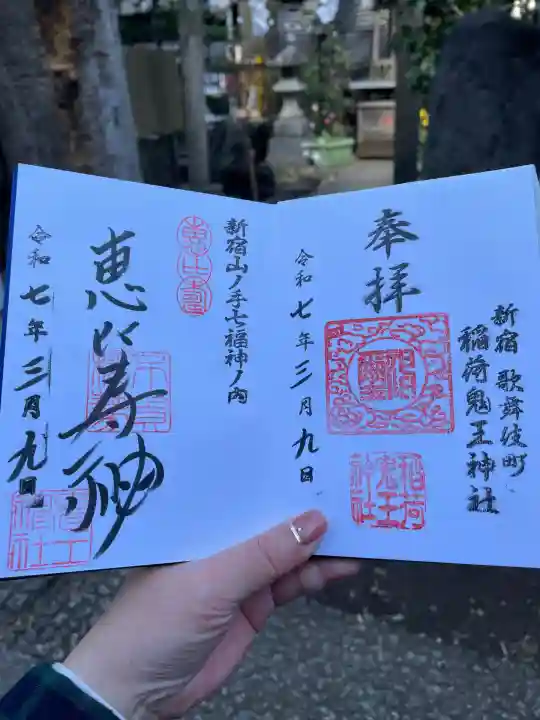 新宿 歌舞伎町
稲荷鬼王神社
奉拝
令和七年三月九日
稲荷
鬼王
神社
新宿山ノ手七福神ノ内
恵比寿
恵比寿神
令和七年三月九日